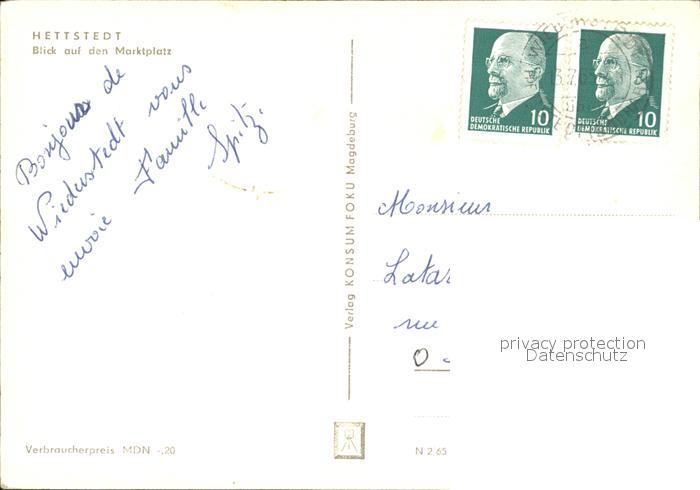 HETTSTEDT
Blick auf den Marktplatz
Bonjour de
Wiederstedt vous
envoie Famille
Spitz.
Verbraucherpreis MDN -,20
Verlag KONSUM FOKU Magdeburg
10
DEUTSCHE
DEMOKRATISCHE REPUBLIK
10
DEUTSCHE
DEMOKRATISCHE REPUBLIK
Monsieur
rue
privacy protection
Datenschutz
N 2 65